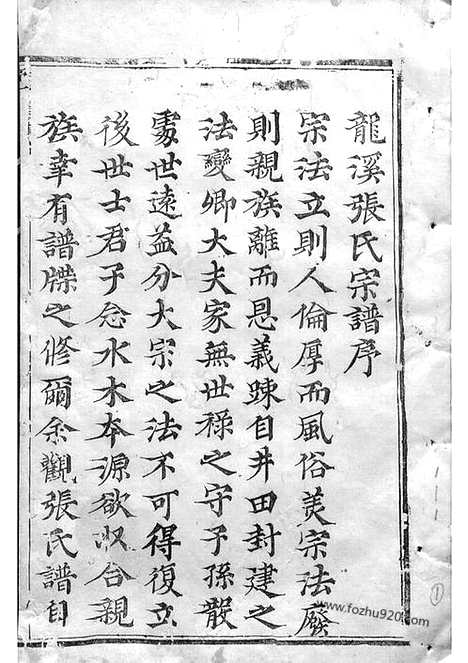 龍溪張氏宗譜序
宗法立則人倫厚而風俗美宗法廢
則親族離而恩義踈自井田封建之
法變卿大夫家無世禄之守子孫散
處世遠益分大宗之法不可得復立
後世士君子念水木本源欲收合親
族幸有譜牒之修爾余觀張氏譜自
www.fozhu920.com
1